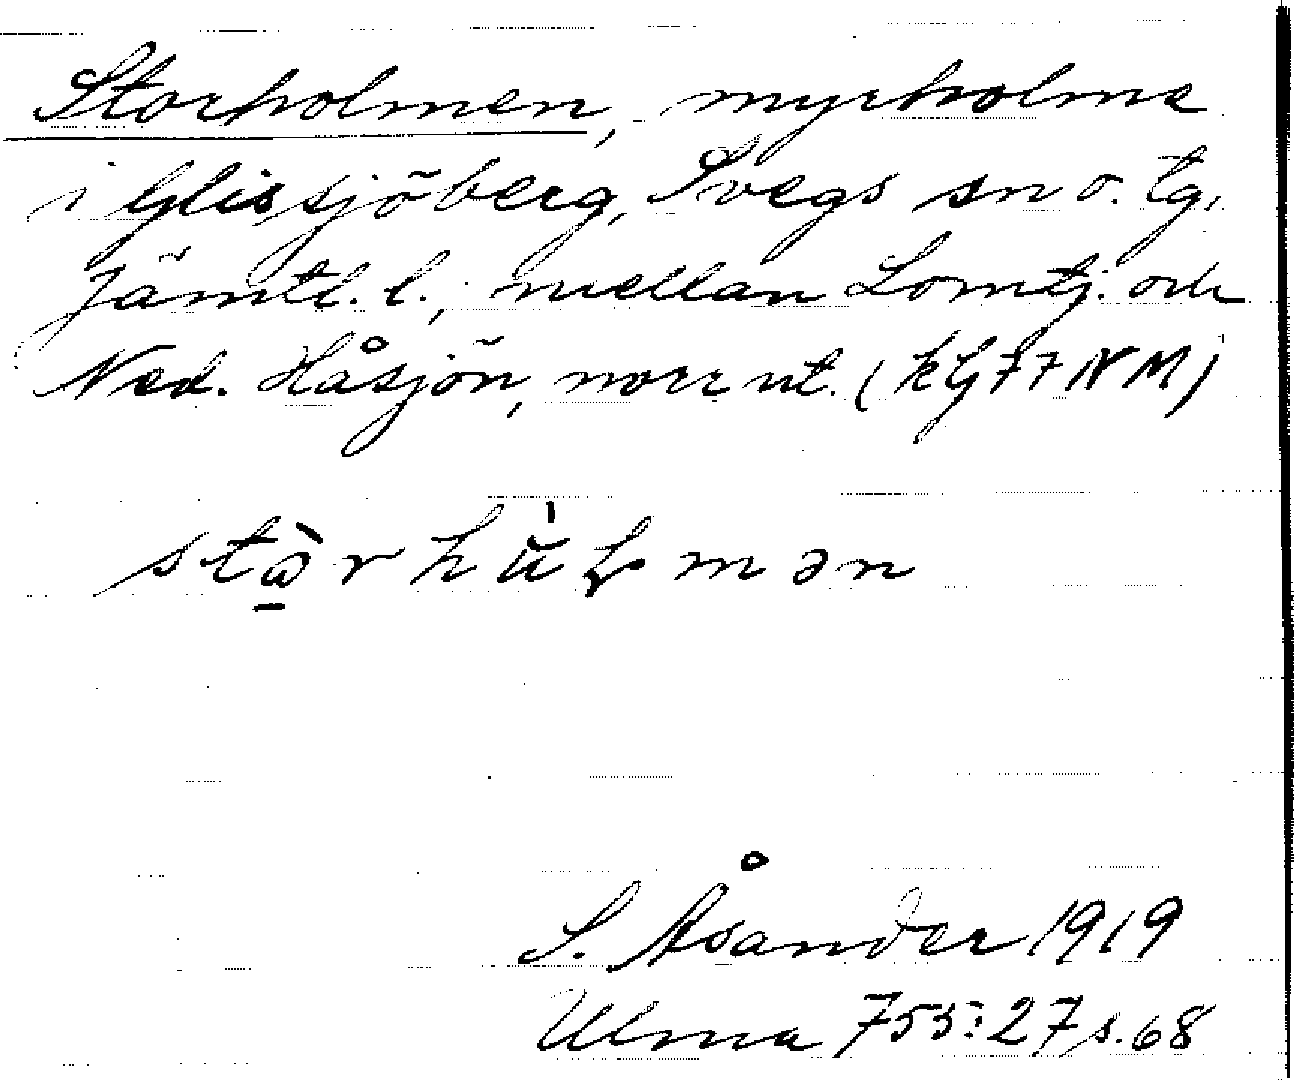 Storholmen, myrholme
i Glissjöberg, Svegs sn o. tg,
Jämtl. l., mellan Lomtj. och
Ned. Håsjön, norr ut. (kG77NM)
stὼ̱rhùɽmən
S. Åsander 1919
Ulma 755:27 s.68